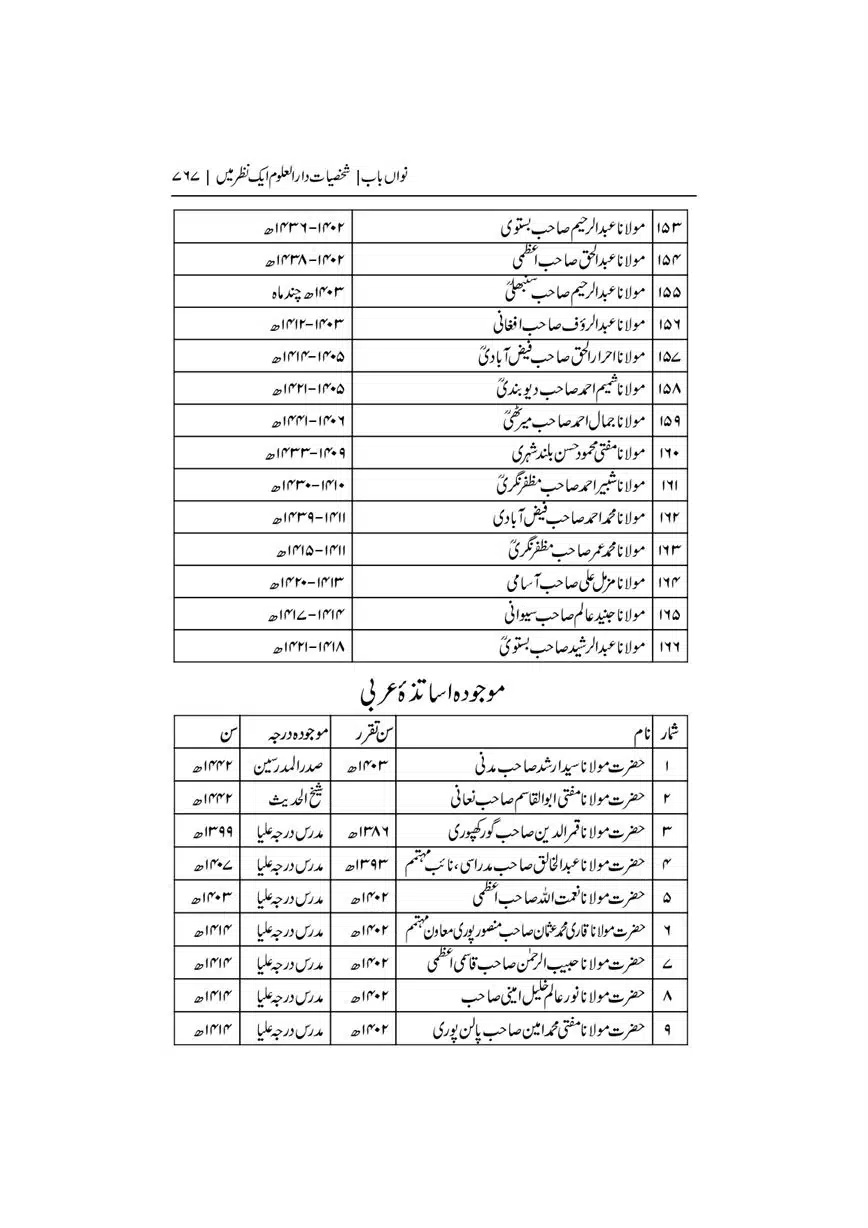 نواں باب | شخصیات دارالعلوم ایک نظر میں | ۷۶۷
۱۵۳ مولانا عبدالرحیم صاحب بستوی ۱۴۰۲-۱۴۳۶ھ
۱۵۴ مولانا عبدالحق صاحب اعظمی ۱۴۰۲-۱۴۳۸ھ
۱۵۵ مولانا عبدالرحیم صاحب سنبھلیؒ ۱۴۰۳ھ چند ماہ
۱۵۶ مولانا عبدالرؤف صاحب افغانی ۱۴۰۳-۱۴۱۲ھ
۱۵۷ مولانا احرار الحق صاحب فیض آبادیؒ ۱۴۰۵-۱۴۱۴ھ
۱۵۸ مولانا شمیم احمد صاحب دیوبندیؒ ۱۴۰۵-۱۴۲۱ھ
۱۵۹ مولانا جمال احمد صاحب میرٹھیؒ ۱۴۰۶-۱۴۴۱ھ
۱۶۰ مولانا مفتی محمود حسن بلند شہری ۱۴۰۹-۱۴۳۳ھ
۱۶۱ مولانا شبیر احمد صاحب مظفر نگریؒ ۱۴۱۰-۱۴۳۰ھ
۱۶۲ مولانا محمد احمد صاحب فیض آبادی ۱۴۱۱-۱۴۳۹ھ
۱۶۳ مولانا محمد عمر صاحب مظفر نگریؒ ۱۴۱۱-۱۴۱۵ھ
۱۶۴ مولانا مزمل علی صاحب آسامی ۱۴۱۳-۱۴۲۰ھ
۱۶۵ مولانا جنید عالم صاحب سیوانی ۱۴۱۴-۱۴۱۷ھ
۱۶۶ مولانا عبدالرشید صاحب بستویؒ ۱۴۱۸-۱۴۲۱ھ
موجودہ اساتذۂ عربی
شمار نام سن تقرر موجودہ درجہ سن
۱ حضرت مولانا سید ارشد صاحب مدنی ۱۴۰۳ھ صدر المدرسین ۱۴۴۲ھ
۲ حضرت مولانا مفتی ابوالقاسم صاحب نعمانی شیخ الحدیث ۱۴۴۲ھ
۳ حضرت مولانا قمرالدین صاحب گورکھپوری ۱۳۸۶ھ مدرس درجہ علیا ۱۳۹۹ھ
۴ حضرت مولانا عبدالخالق صاحب مدراسی، نائب مہتمم ۱۳۹۳ھ مدرس درجہ علیا ۱۴۰۷ھ
۵ حضرت مولانا نعمت اللہ صاحب اعظمی ۱۴۰۲ھ مدرس درجہ علیا ۱۴۰۳ھ
۶ حضرت مولانا قاری محمد عثمان صاحب منصور پوری معاون مہتمم ۱۴۰۲ھ مدرس درجہ علیا ۱۴۱۴ھ
۷ حضرت مولانا حبیب الرحمٰن صاحب قاسمی اعظمی ۱۴۰۲ھ مدرس درجہ علیا ۱۴۱۴ھ
۸ حضرت مولانا نور عالم خلیل امینی صاحب ۱۴۰۲ھ مدرس درجہ علیا ۱۴۱۴ھ
۹ حضرت مولانا مفتی محمد امین صاحب پالن پوری ۱۴۰۲ھ مدرس درجہ علیا ۱۴۱۴ھ